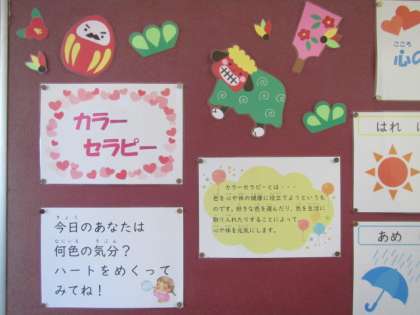 カラー
セラピー
カラーセラピーとは・・・
色を心や体の健康に役立てようというも
のです。好きな色を選んだり、色を生活に
取り入れたりすることによって
心や体を元気にします。
きょう
今日のあなたは
なにいろ きぶん
何色の気分?
ハートをめくって
みてね!
こころ
心の
はれ
あめ